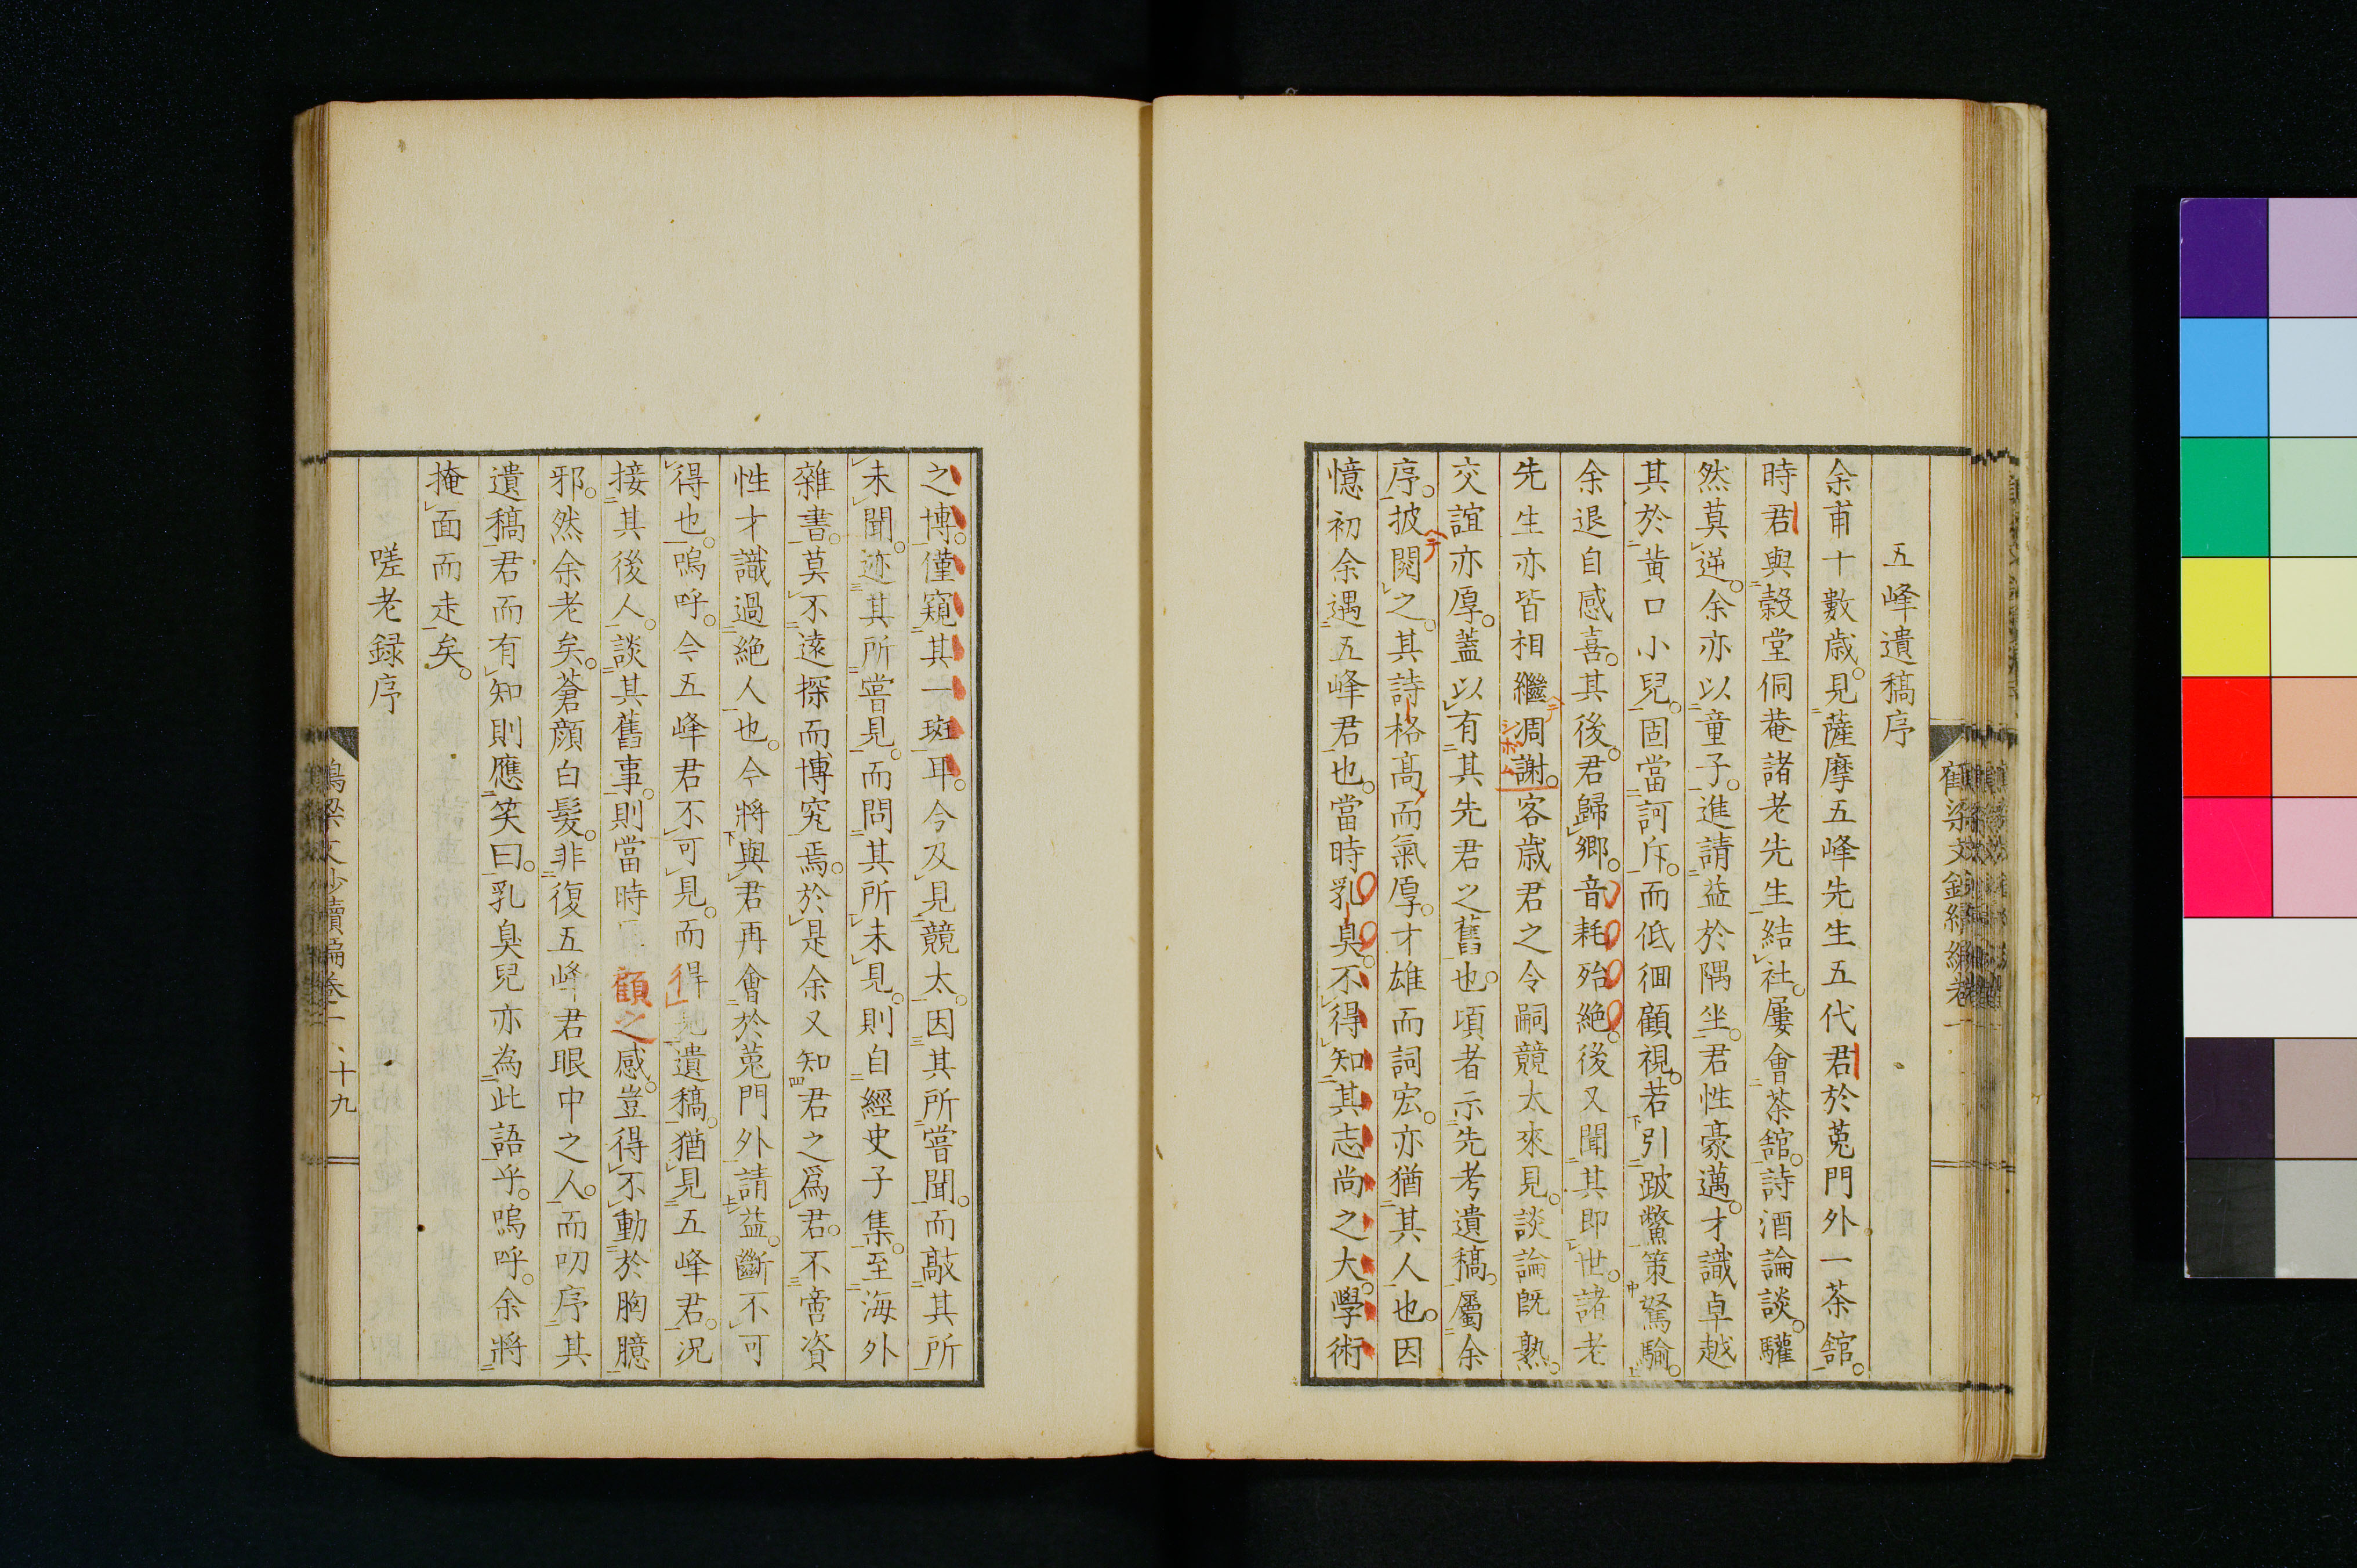 五峰遺稿序
余甫十數歳。見薩摩五峰先生五代君於菟門外一茶館。
時君與穀堂侗菴諸老先生結社。屢會茶館。詩酒論談。驩
然莫逆。余亦以童子。進請益於隅坐。君性豪邁。才識卓越
其於黄口小兒。固當訶斥。而低徊顧視。若引跛鱉策駑駘。
余退自感喜。其後。君歸郷。音耗殆絶。後又聞其即世。諸老
先生亦皆相繼凋謝。客歳君之令嗣競太來見。談論既熟。
交誼亦厚。蓋以有其先君之舊也。頃者示先考遺稿。屬余
序。披閲之。其詩格高而氣厚。才雄而詞宏。亦猶其人也。因
憶初余遇五峰君也。當時乳臭。不得知其志尚之大。學術
之博。僅窺其一斑耳。今及見競太。因其所嘗聞。而敲其所
未聞。迹其所嘗見。而問其所未見。則自經史子集。至海外
雜書。莫不遠探而博究焉。於是余又知君之爲君。不啻資
性才識過絶人也。今將與君再會於菟門外請益。斷不可
得也。嗚呼。今五峰君不可見。而得見遺稿。猶見五峰君。況
接其後人。談其舊事。則當時顧之感。豈得不動於胸臆
邪。然余老矣。蒼顔白髪。非復五峰君眼中之人。而叨序其
遺稿。君而有知則應笑曰。乳臭兒亦為此語乎。嗚呼。余將
掩面而走矣。
嗟老録序
梁文鈔續編卷一
十九